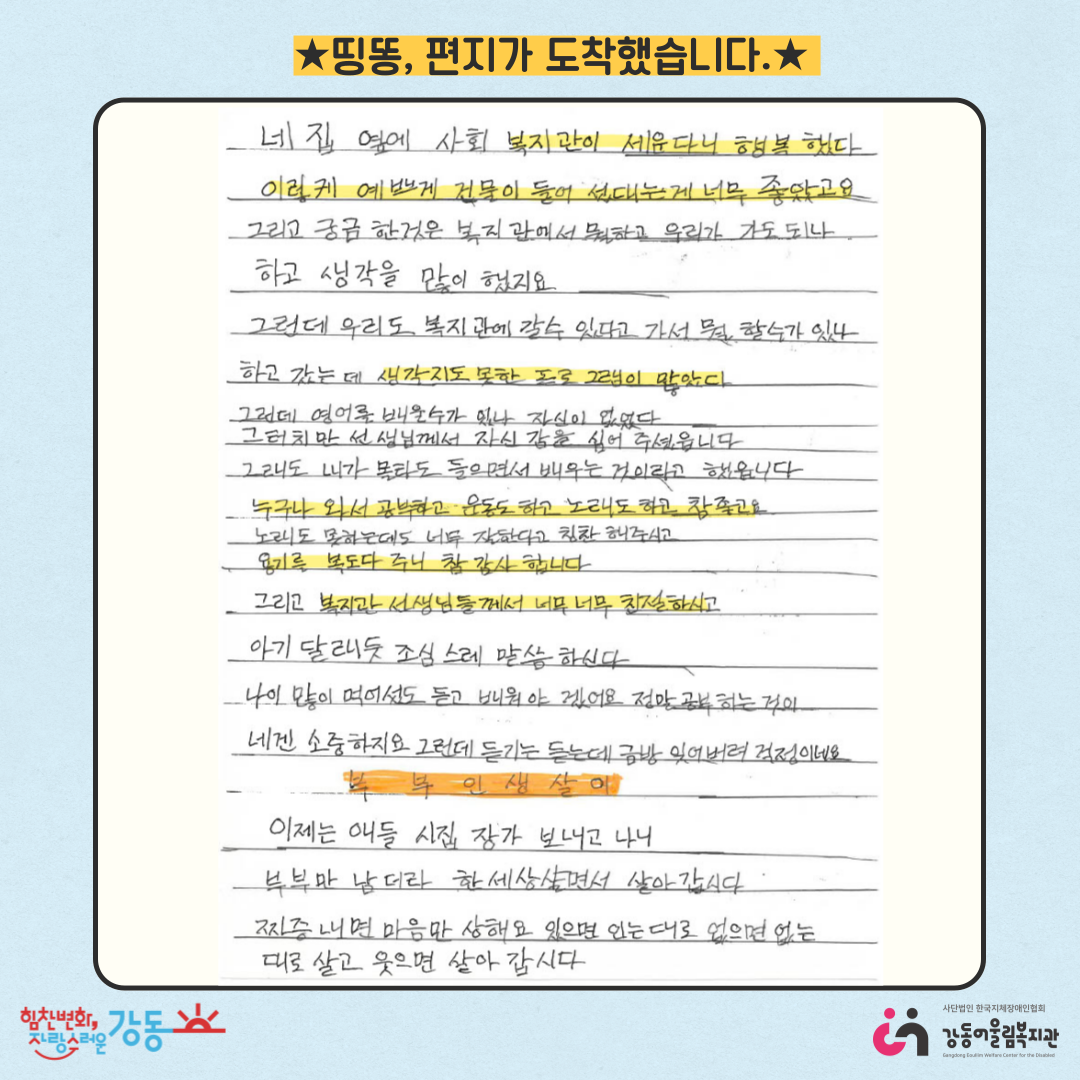 ★띵똥, 편지가 도착했습니다.★
네 집 옆에 사회 복지관이 세운다니 행복 했다
이렇케 예쁘게 건물이 들어 선대는게 너무 좋았고요
그리고 궁금 한것은 복지관에서 뭘하고 우리가 가도 되나
하고 생각을 많이 했지요
그런데 우리도 복지관에 갈수 있다고 가서 뭘 할수가 있나
하고 갔는 데 생각지도 못한 프로 그램이 많았다
그런데 영어를 배울수가 있나 자신이 없었다
그러치만 선생님께서 자신 감을 심어 주셨읍니다
그래도 내가 몰라도 들으면서 배우는 것이라고 했읍니다
누구나 와서 공부하고 운동도 하고 노래도 하고 참 좋고요
노래도 못하는데도 너무 잘한다고 칭찬 해주시고
용기를 복도다 주니 참 감사 합니다
그리고 복지관 선생님들께서 너무 너무 친절하시고
아기 달래듯 조심 스레 말씀 하신다
나이 많이 먹어서도 듣고 배워야 겠어요 정말 공부 하는 것이
네겐 소중하지요 그런데 듣기는 듣는데 금방 잊어버려 걱정이네요
부 부 인 생 살 이
이제는 애들 시집 장가 보내고 나니
부부만 남더라 한세상살면서 살아갑시다
짜증내면 마음만 상해요 있으면 있는대로 없으면 없는
대로 살고 웃으면 살아 갑시다
힘찬변화,
자랑스러운 강동
사단법인 한국지체장애인협회
강동어울림복지관
Gangdong Eoullim Welfare Center for the Disabled